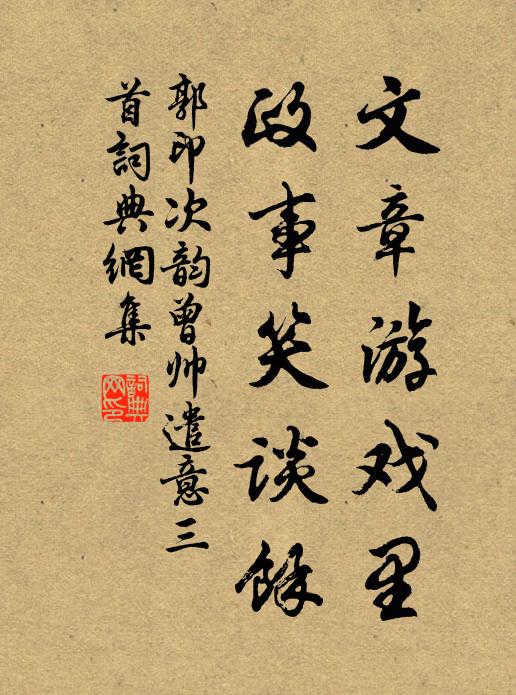 文章游戏里
政事笑谈馀
郭印次韵曾帅遣意三
首词典網集
詞典网印